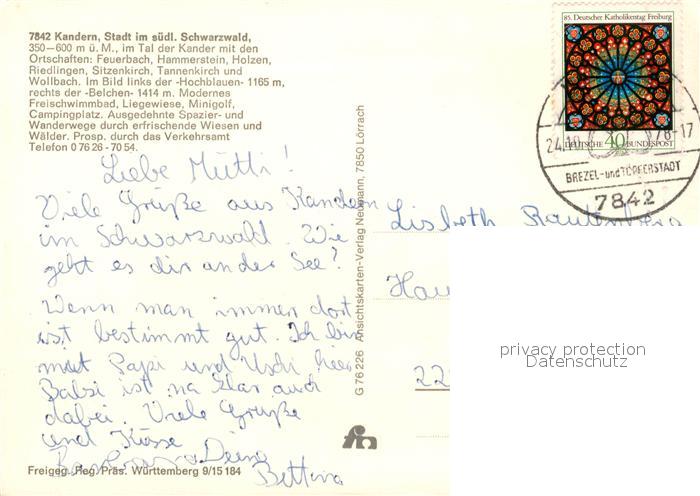 7842 Kandern, Stadt im südl. Schwarzwald,
350—600 m ü. M., im Tal der Kander mit den
Ortschaften: Feuerbach, Hammerstein, Holzen,
Riedlingen, Sitzenkirch, Tannenkirch und
Wollbach. Im Bild links der -Hochblauen- 1165 m,
rechts der -Belchen- 1414 m. Modernes
Freischwimmbad, Liegewiese, Minigolf,
Campingplatz. Ausgedehnte Spazier- und
Wanderwege durch erfrischende Wiesen und
Wälder. Prosp. durch das Verkehrsamt
Telefon 0 76 26 - 70 54.
Liebe Mutti!
Viele Grüße aus Kandern
im Schwarzwald. Wie
geht es dir an der See?
Wenn man immer dort
ist bestimmt gut. Ich bin
mit Papi und Uschi hier
ist na klar auch
dabei. Viele Grüße
und Küsse
Deine
Bettina
Freigeg. Reg. Präs. Württemberg 9/15 184
G 76 226 Ansichtskarten-Verlag Neumann, 7850 Lörrach
85. Deutscher Katholikentag Freiburg
DEUTSCHE 40 BUNDESPOST
24.10 78-17
BREZEL- und TÖPFERSTADT
7842
Lisbeth Rautenberg
Hau
22
privacy protection
Datenschutz